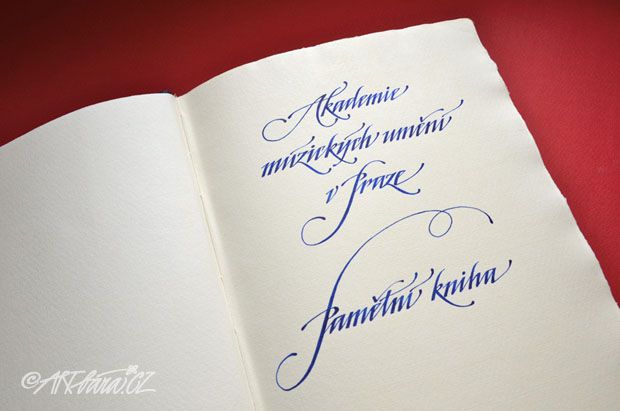 Akademie
múzických umění
v Praze
Pamětní kniha
©ARTbara.CZ